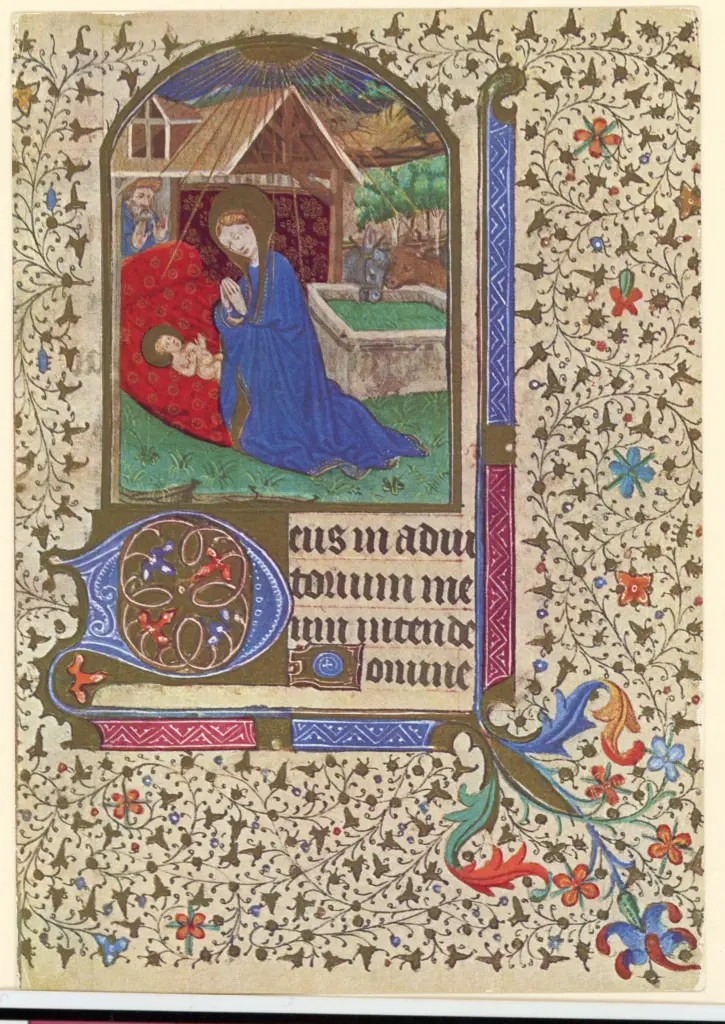 Deus in adiu
torium me
um intende
Domine